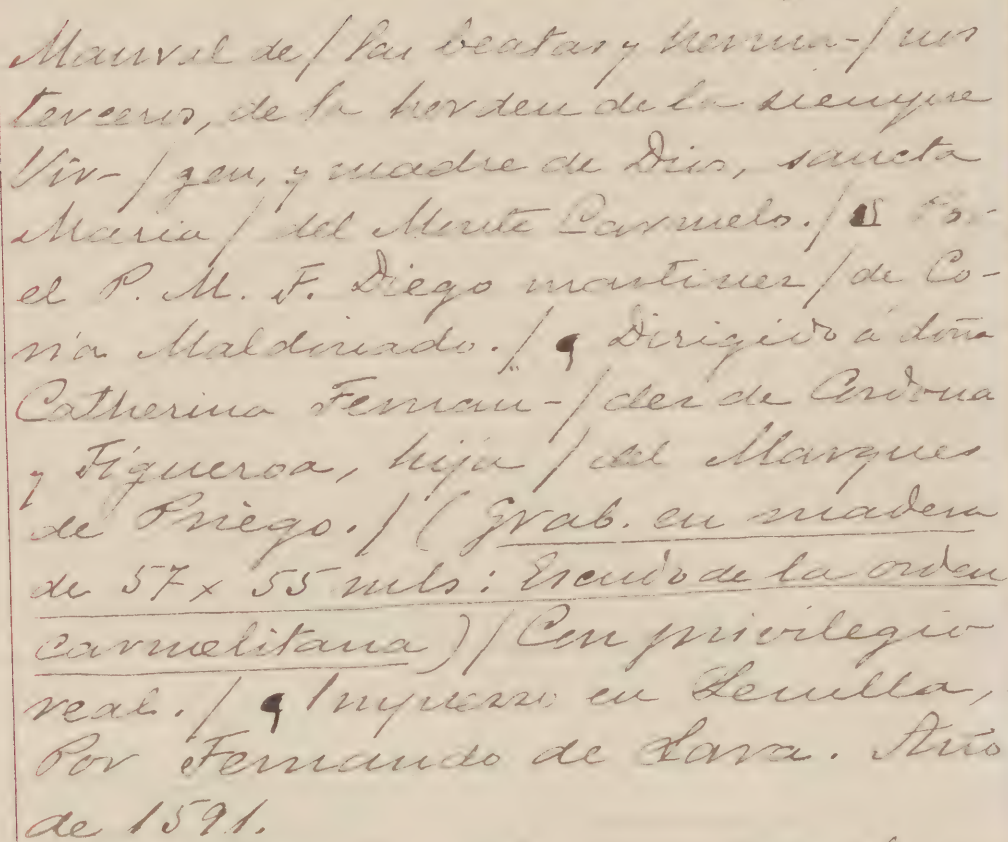 Manval de / las beatas y herma- / nos
terceros, de la horden de la siempre
Vir- / gen, y madre de Dios, sancta
Maria / del Monte Carmelo. / ¶ Por
el P. M. F. Diego martinez / de Co-
ria Maldonado. / ¶ Dirigido á doña
Catherina Fernan- / dez de Cordona
y Figueroa, hija / del Marques
de Priego. / (Grab. en madera
de 57 x 55 mls: Escudo de la orden
carmelitana) / Con privilegio
real. / ¶ Impresso en Seuilla,
Por Fernando de Lara. Año
de 1591.